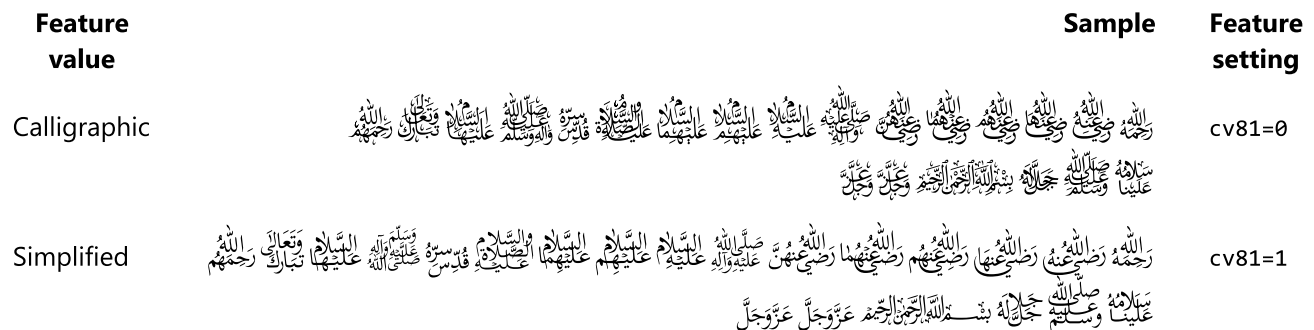 Feature value	Sample	Feature setting
Calligraphic	رحمه الله رضي الله عنه رضي الله عنها رضي الله عنهم رضي الله عنهما رضي الله عنهن صلى الله عليه وآله عليه السلام عليهم السلام عليهما السلام عليه الصلاة والسلام قدس سره صلى الله عليه وآله وسلم عليها السلام تبارك وتعالى رحمهم الله	cv81=0
سلامه علينا صلى الله عليه وسلم جل جلاله بسم الله الرحمن الرحيم عز وجل عز وجل
Simplified	رحمه الله رضي الله عنه رضي الله عنها رضي الله عنهم رضي الله عنهما رضي الله عنهن صلى الله عليه وآله عليه السلام عليهم السلام عليهما السلام عليه الصلاة والسلام قدس سره صلى الله عليه وآله وسلم عليها السلام تبارك وتعالى رحمهم الله	cv81=1
سلامه علينا صلى الله عليه وسلم جل جلاله بسم الله الرحمن الرحيم عز وجل عز وجل